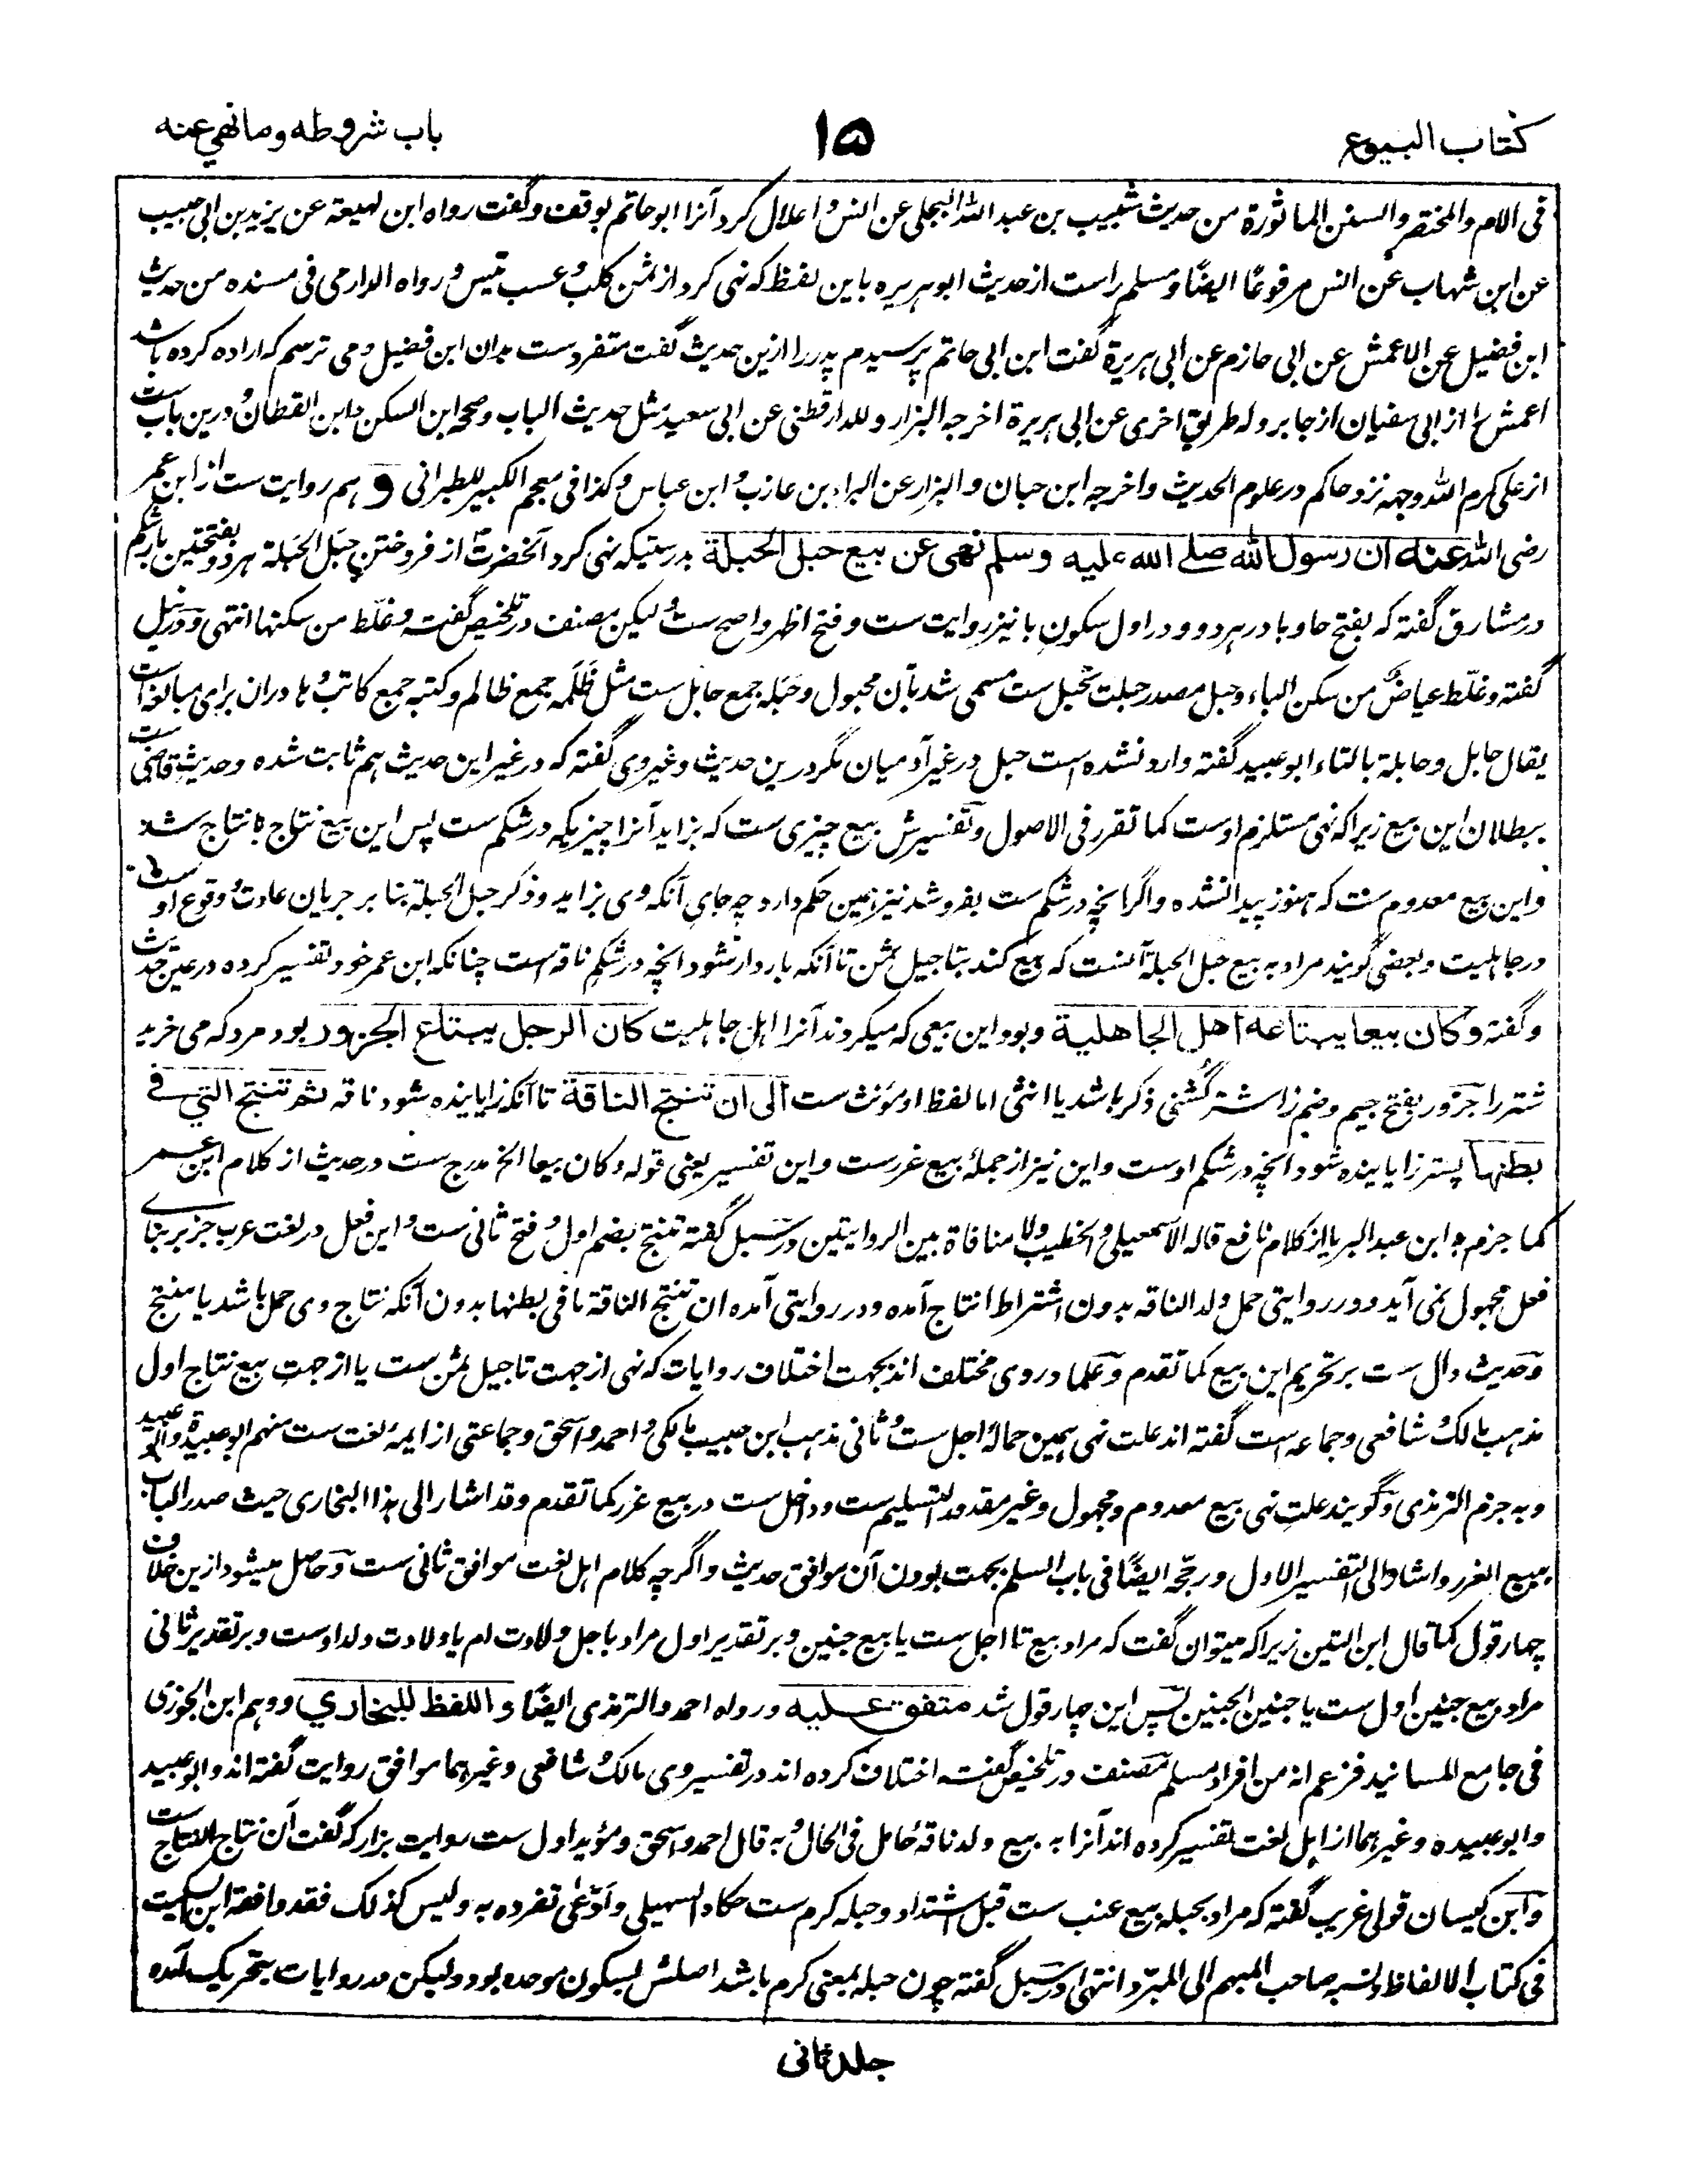 کتاب البیوع
۱۵
باب شروطه وما نهي عنه
فی الام والمختصر والسنن الماثورة من حدیث شبیب بن عبد الله البجلی عن انس و اعلال کرد آنرا ابو حاتم بوقف و گفت رواه ابن لهیعة عن یزید بن ابی حبیب
عن ابن شهاب عن انس مرفوعًا ایضًا و مسلم راست از حدیث ابو هریره باین لفظ که نهی کرد از ثمن کلب و عسب تیس و رواه الدارمی فی مسنده من حدیث
ابن فضیل عن الاعمش عن ابی حازم عن ابی هریرة گفت ابن ابی حاتم پرسیدم پدر را ازین حدیث گفت متفرد ست بدان ابن فضیل و می ترسم که اراده کرده باشد
اعمش از ابی سفیان از جابر و له طریق اخری عن ابی هریرة اخرجه البزار و للدارقطنی عن ابی سعید مثل حدیث الباب وصححه ابن السکن و ابن القطان و درین باب ست
از علی کرم الله وجهه نزد حاکم در علوم الحدیث واخرجه ابن حبان و البزار عن البراء بن عازب و ابن عباس و کذا فی معجم الکبیر للطبرانی و هم روایت ست از ابن عمر
رضی الله عنه ان رسول الله صلے الله علیه وسلم نهى عن بیع حبل الحبلة بدرستیکه نهی کرد آنحضرت از فروختن حبل الحبلة هر دو بفتحتین بار شکم
در مشارق گفته که بفتح حا و با در هر دو و در اول سکون با نیز روایت ست و فتح اظهر و اصح ست و لیکن مصنف در تلخیص گفته و غلّط من سکنها انتهی و در نیل
گفته و غلّط عیاض من سکن الباء و حبل مصدر حبلت تحبل ست مسمی شد بآن محبول و حَبَله جمع حابل ست مثل ظَلَمه جمع ظالم و کتبه جمع کاتب و ها دران برای مبالغه است
یقال حابل و حابلة بالتاء ابو عبید گفته وارد نشده است حبل در غیر آدمیان مگر درین حدیث و غیر وی گفته که در غیر این حدیث هم ثابت شده و حدیث قاضی ست
ببطلان این بیع زیرا که نهی مستلزم اوست کما تقرر فی الاصول و تفسیرش بیع چیزی ست که بزاید آنرا چیزیکه در شکم ست پس این بیع نتاج نتاج شد
و این بیع معدوم ست که هنوز پیدا نشده و اگر آنچه در شکم ست بفروشد نیز همین حکم دارد چه جای آنکه وی بزاید و ذکر حبل الحبلة بنا بر جریان عادت و وقوع او ست
در جاهلیت و بعضی گویند مراد به بیع حبل الحبلة آنست که بیع کند بتاجیل ثمن تا آنکه باردار شود آنچه در شکم ناقه است چنانکه ابن عمر خود تفسیر کرده در عین حدیث
و گفته وکان بیعا یبتاعه اهل الجاهلیة و بود این بیعی که میکردند آنرا اهل جاهلیت کان الرجل یبتاع الجزور بود مرد که می خرید
شتر را جزور بفتح جیم و ضم زا شتر گشنی ذکر باشد یا انثی اما لفظ او مؤنث ست الی ان تنتج الناقة تا آنکه زایانیده شود ناقه ثم تنتج التي في
بطنها پستر زایانیده شود آنچه در شکم اوست و این نیز از جملهٔ بیع غررست و این تفسیر یعنی قوله و کان بیعا الخ مدرج ست در حدیث از کلام ابن عمر
کما جزم به ابن عبد البر یا از کلام نافع قاله الاسمعیلی و الخطیب ولا منافاة بین الروایتین در سبل گفته تنتج بضم اول و فتح ثانی ست و این فعل در لغت عرب جز بر بنای
فعل مجهول نمی آید و در روایتی حمل ولد الناقه بدون اشتراط انتاج آمده و در روایتی آمده ان تنتج الناقة ما فی بطنها بدون آنکه نتاج وی حمل باشد یا منتج
و حدیث دال ست بر تحریم این بیع کما تقدم و علما در وی مختلف اند بجهت اختلاف روایات که نهی از جهت تاجیل ثمن ست یا از جهت بیع نتاج اول
مذهب مالک و شافعی و جماعه است گفته اند علت نهی همین جهالة اجل ست و ثانی مذهب ابن حبیب مالکی و احمد و اسحق و جماعتی از ایمهٔ لغت ست منهم ابو عبیدة و ابو عبید
و به جزم الترمذی و گویند علت نهی بیع معدوم و مجهول و غیر مقدور التسلیم ست و داخل ست در بیع غرر کما تقدم وقد اشار الی هذا البخاری حیث صدر الباب
ببیع الغرر و اشار الی التفسیر الاول و رجّحه ایضًا فی باب السلم بجهت بودن آن موافق حدیث و اگرچه کلام اهل لغت موافق ثانی ست و حاصل میشود ازین خلاف
چهار قول کما قال ابن التین زیرا که میتوان گفت که مراد بیع تا اجل ست یا بیع جنین و بر تقدیر اول مراد باجل ولادت ام یا ولادت ولد اوست و بر تقدیر ثانی
مراد بیع جنین اول ست یا جنین الجنین پس این چهار قول شد متفق علیه و رواه احمد والترمذی ایضًا و اللفظ للبخاري و وهم ابن الجوزی
فی جامع المسانید فزعم انه من افراد مسلم مصنف در تلخیص گفته اختلاف کرده اند در تفسیر وی مالک و شافعی و غیرهما موافق روایت گفته اند و ابو عبید
و ابو عبیده و غیرهما از اهل لغت تفسیر کرده اند آنرا به بیع ولد ناقهٔ حامل فی الحال و به قال احمد و اسحق و مؤید اول ست روایت بزار که گفت آن نتاج النتاج ست
و ابن کیسان قولی غریب گفته که مراد بحبله بیع عنب ست قبل اشتداد و حبله کرم ست حکاه السهیلی و ادّعی تفرده به و لیس کذلک فقد وافقه ابن السکیت
فی کتاب الالفاظ و نسبه صاحب المبهم الی المبرّد انتهی و در سبل گفته چون حبله بمعنی کرم باشد اصلش بسکون موحده بود ولیکن در روایات بتحریک آمده
جلد ثانی